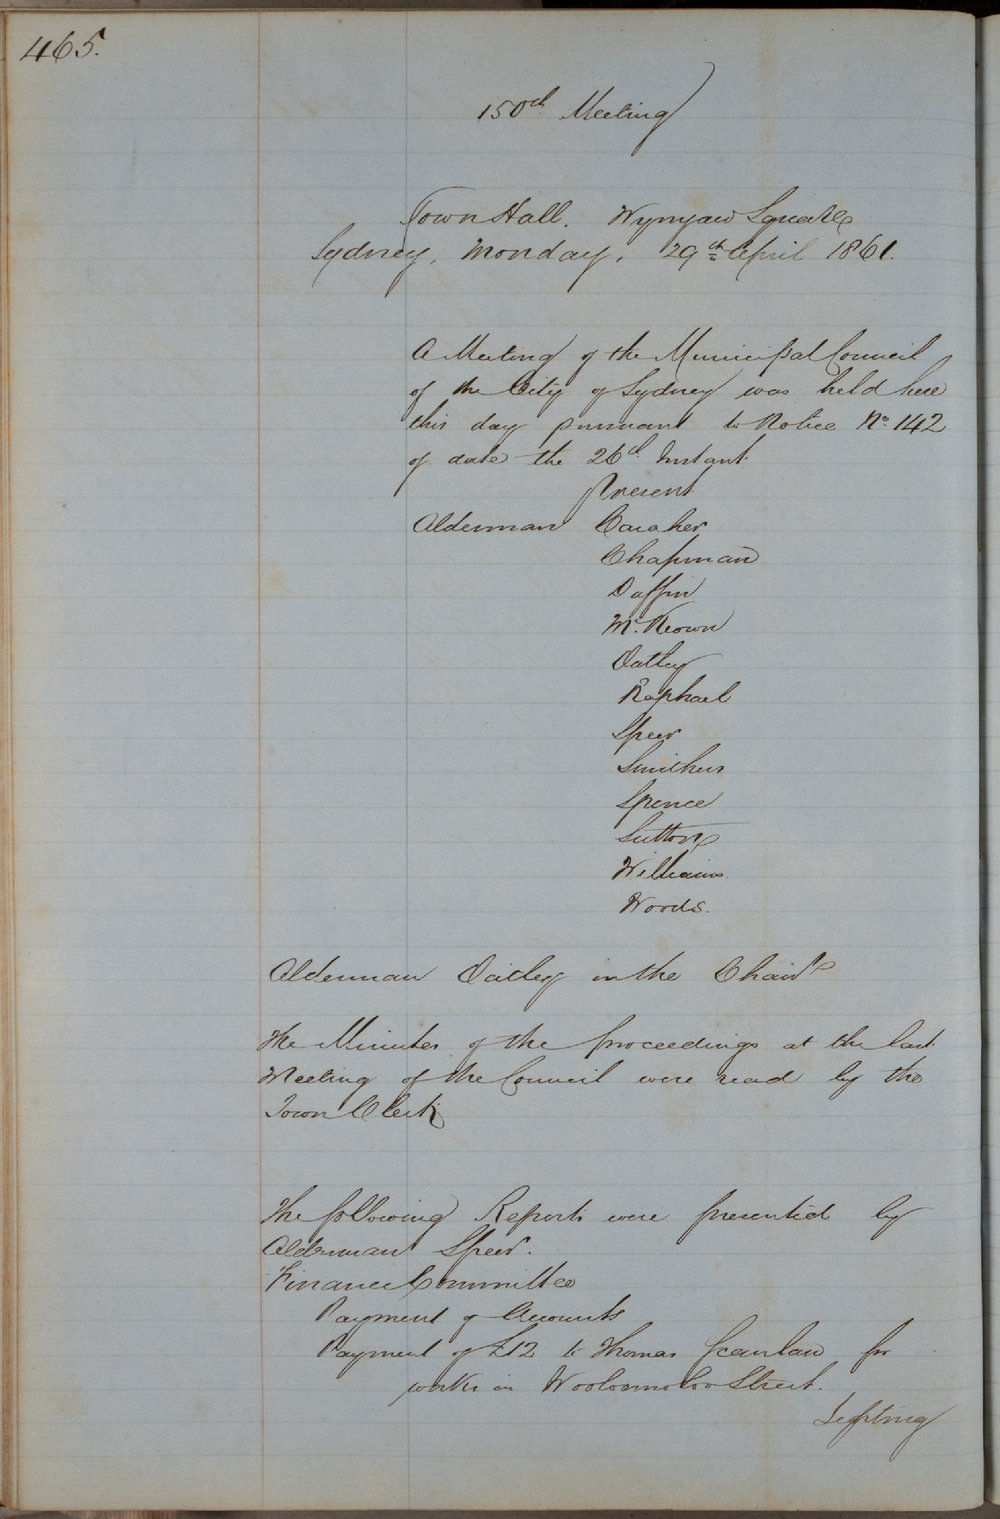 465.
150th Meeting
Town Hall. Wynyard Square
Sydney, Monday, 29th April 1861.
A Meeting of the Municipal Council
of the City of Sydney was held here
this day pursuant to Notice No. 142
of date the 26th Instant.
Present
Alderman Caraher
Chapman
Daffin
McKeown
Oatley
Raphael
Speer
Smithers
Spence
Sutton
Williams
Woods.
Alderman Oatley in the Chair
The Minutes of the proceedings at the last
Meeting of the Council were read by the
Town Clerk
The following Reports were presented by
Alderman Speer.
Finance Committee
Payment of Accounts
Payment of £12 to Thomas Scanlan for
works in Wooloomooloo Street.